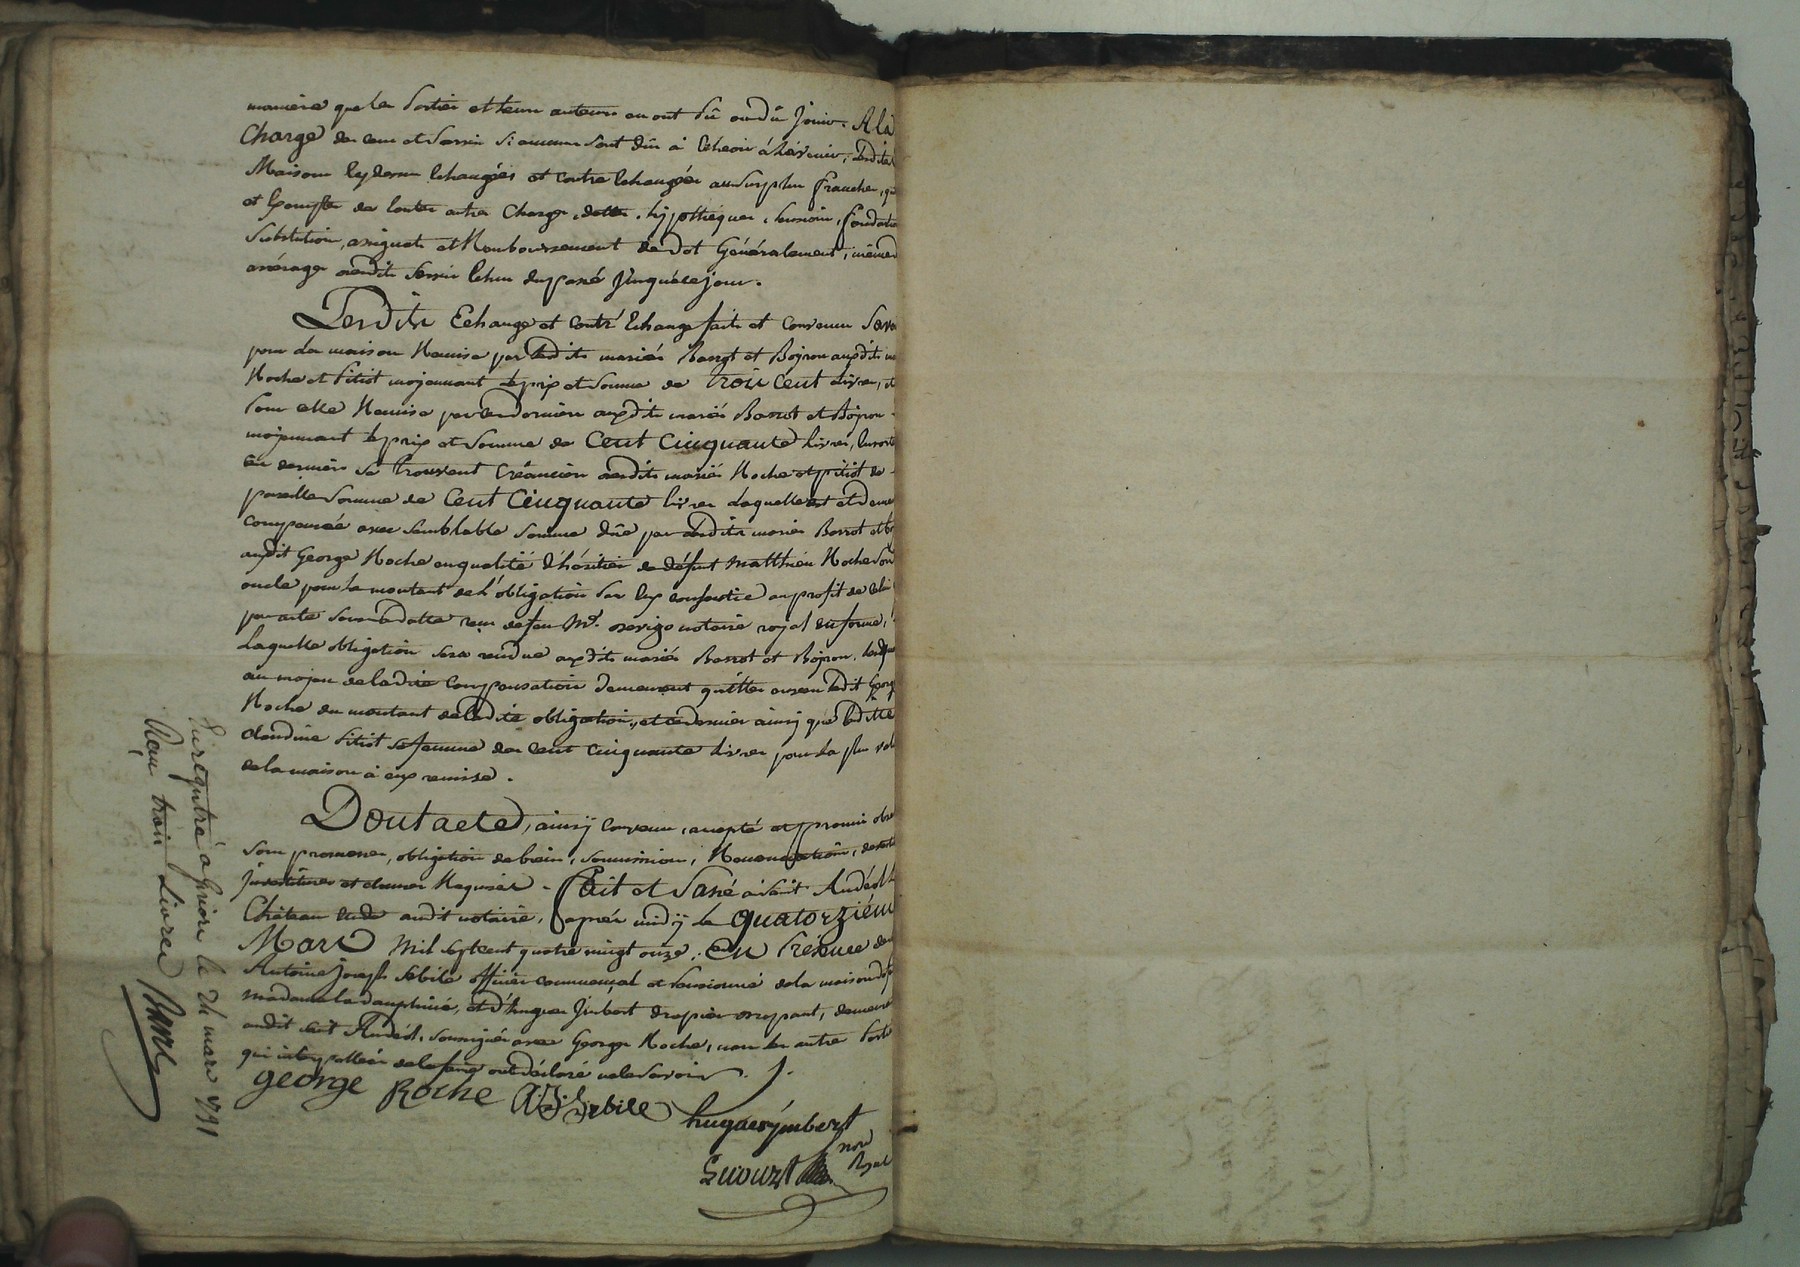 manière que les parties et leurs auteurs en ont pû ou dû jouir. A la
Charge des cens et servis si aucuns sont dûs à échoir à l'avenir, lesdites
Maisons cy dessus echangées et contre echangées au surplus franches,
et exemptes de toutes autres Charges, dettes, hypothèques, pensions, fondations
substitution, assignats et Remboursement de dot Généralement, même des
arrérages desdits servis échus du passé jusqu'à ce jour.
Lesdits Echange et contr'Echange faits et convenus
pour la maison Remise par lesdits mariés Barrot et Bojron auxdits
Roche et Pitiot moyennant le prix et somme de trois cent livres, et
pour celle Remise par ces derniers auxdits mariés Barrot et Bojron
moyennant le prix et somme de Cent Cinquante livres,
ces derniers se trouvent Créanciers desdits mariés Roche et Pitiot de
pareille somme de Cent Cinquante livres laquelle est et demeure
compensée avec semblable somme dûe par lesdits mariés Barrot et
audit George Roche en qualité d'héritier de défunt Matthieu Roche son
oncle pour le montant de l'obligation par eux consentie au profit de celui
par acte sous sa datte reçu de feu Me. notaire royal en forme,
Laquelle obligation sera rendue auxdits mariés Barrot et Bojron,
au moyen de ladite compensation demeurent quittes envers ledit George
Roche du montant de ladite obligation, et ce dernier ainsy que ladite
claudine Pitiot sa femme des cent cinquante livres pour la plus
de la maison à eux remise.
Dont acte, ainsy convenu, accepté et promis
par promesses, obligation de biens, soumissions, Renonciations,
et clauses Requises. Fait et Passé à saint Andéol
Château Etude dudit notaire, après midy le quatorzième
Mars Mil sept cent quatre vingt onze. en Présence de
Antoine joseph sebile officier commensal et pensionné de la maison de
madame la dauphine, et d'hugues jmbert drapier, demeurant
audit saint Andéol, soussignés avec George Roche, non les autres Parties
qui interpellées de le faire ont déclaré ne le savoir.
george Roche A. J. Sebile
hugues jmbert
nore
Royal
Enregistré à Givors le 24 mars 1791
Reçu trois Livres